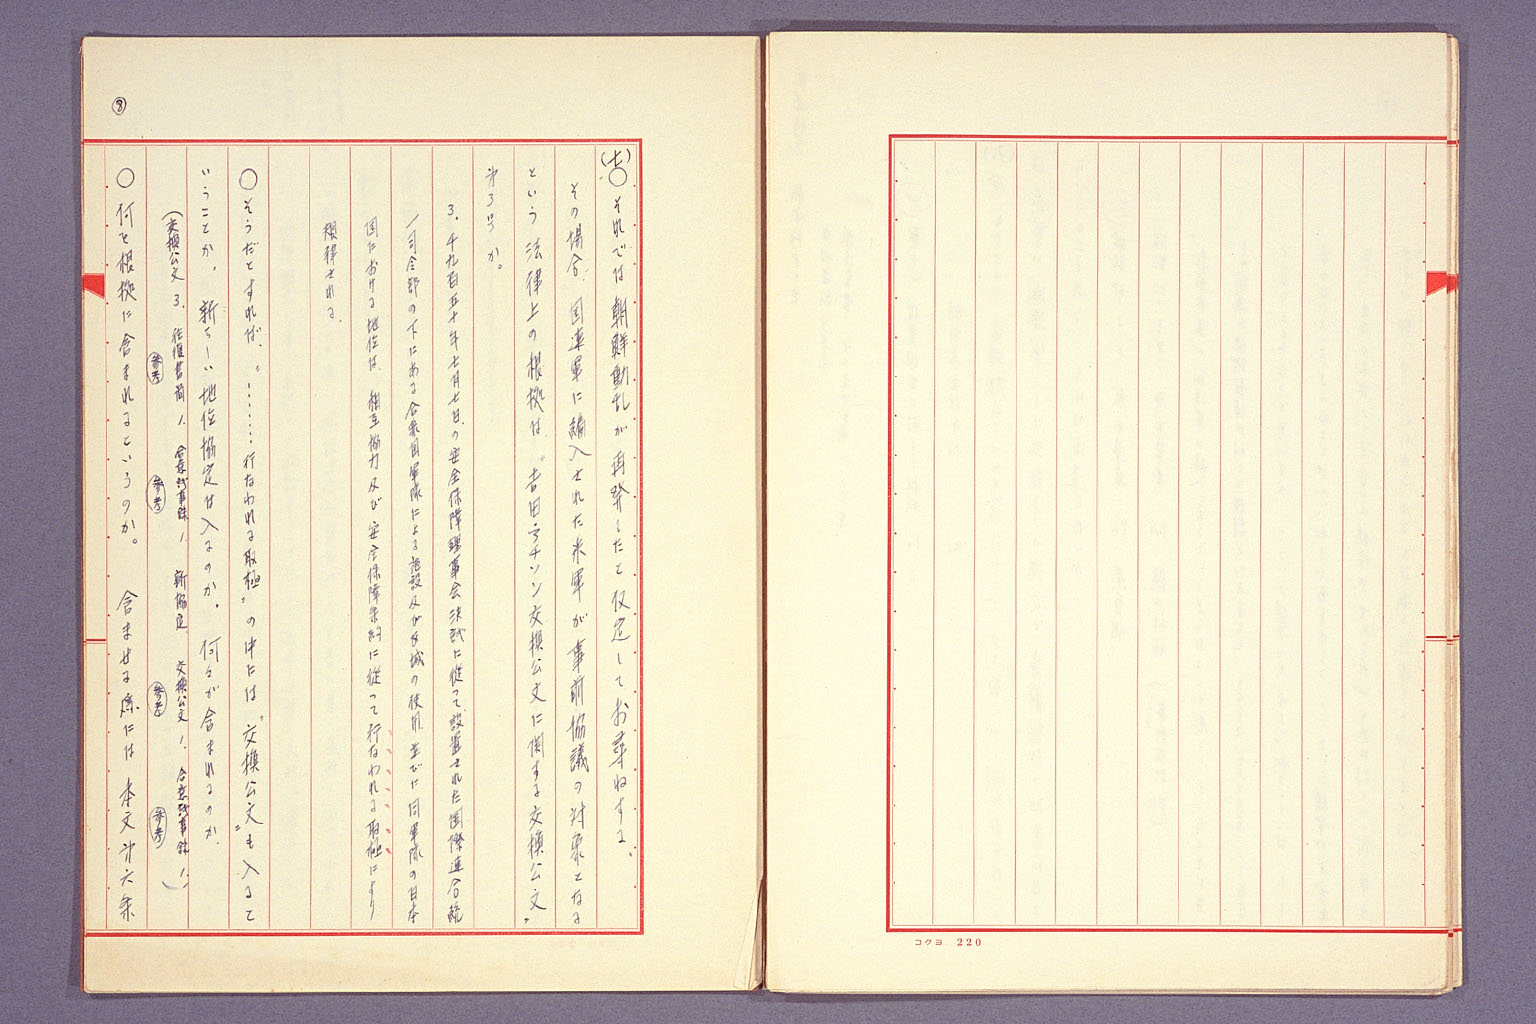 ⑧
(七)○それでは朝鮮動乱が再発したと仮定してお尋ねする。
その場合、国連軍に編入された米軍が事前協議の対象となる
という法律上の根拠は、"吉田・アチソン交換公文に関する交換公文"
第3号か。
3. 千九百五十年七月七日の安全保障理事会決議に従って設置された国際連合統
一司令部の下にある合衆国軍隊による施設及び区域の使用並びに同軍隊の日本
国における地位は、相互協力及び安全保障条約に従って行なわれる取極により
規律される。
○そうだとすれば、"‥‥‥‥行なわれる取極"の中には"交換公文"も入ると
いうことか。新らしい地位協定は入るのか。何々が含まれるのか。
(交換公文3. 往復書簡1. 合意議事録1. 新協定 交換公文1. 合意議事録1.)
参考 参考 参考 参考
○何を根拠に含まれるというのか。 含ませる際には本文第六条
コクヨ 220